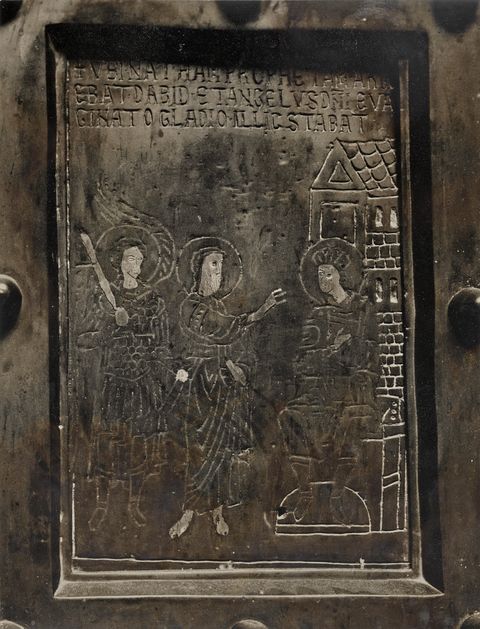 + VBI NATHAM PROPHETA
EBAT DABID ET ANGELVS DNI EVA
GINATO GLADIO ILLIC STABAT